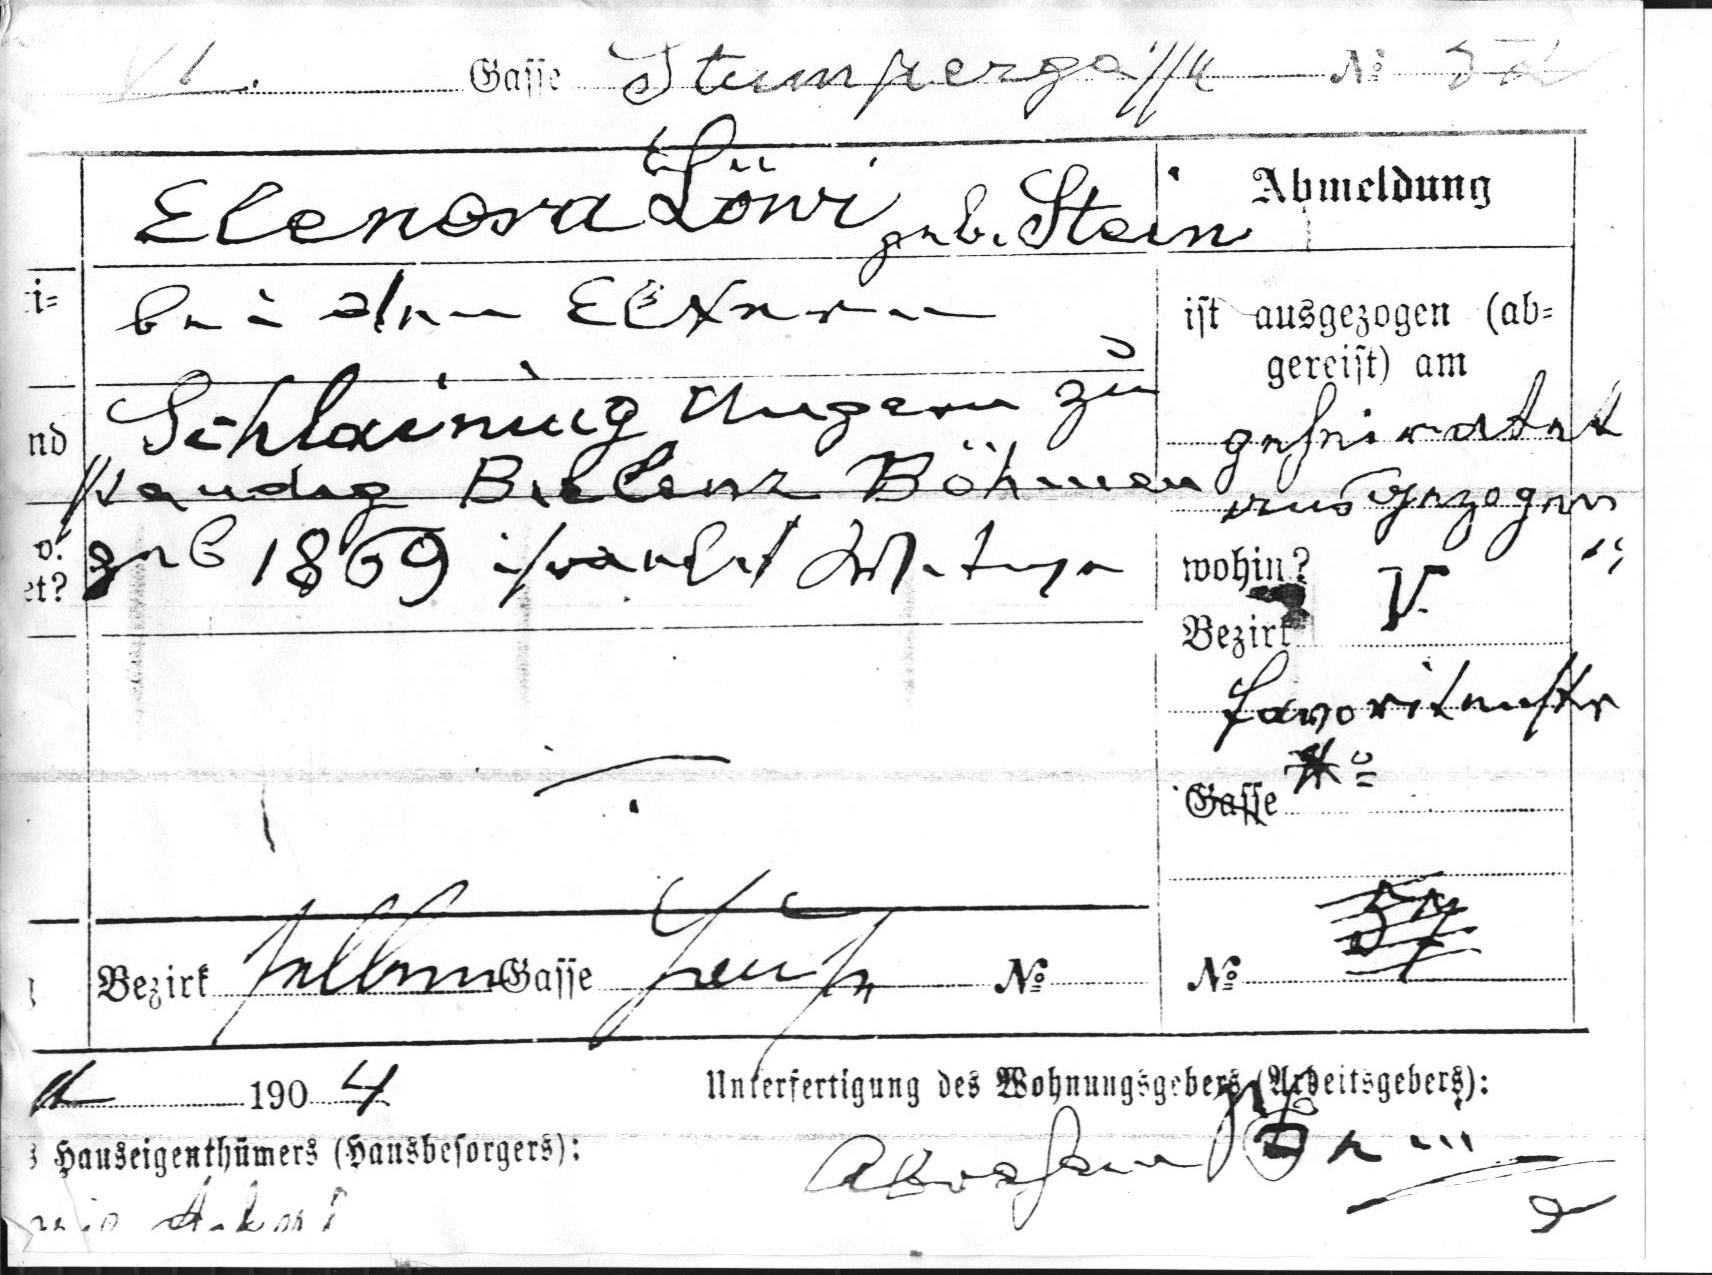 VI. Gasse Stumpergasse No 5
Elenora Löwi geb. Stein
Abmeldung
i=
bei den Eltern
ist ausgezogen (ab=
gereist) am
nd
Schlaining Ungarn zu
ständig Bielenz Böhmen
geheiratet
ausgezogen
v.
et?
geb 1869 israelit Witwe
wohin?
Bezirk V.
Favoritenstr
Gasse
Bezirk Gasse No
No 57
190 4
Unterfertigung des Wohnungsgebers (Arbeitsgebers):
s Hauseigenthümers (Hausbesorgers):
Abraham